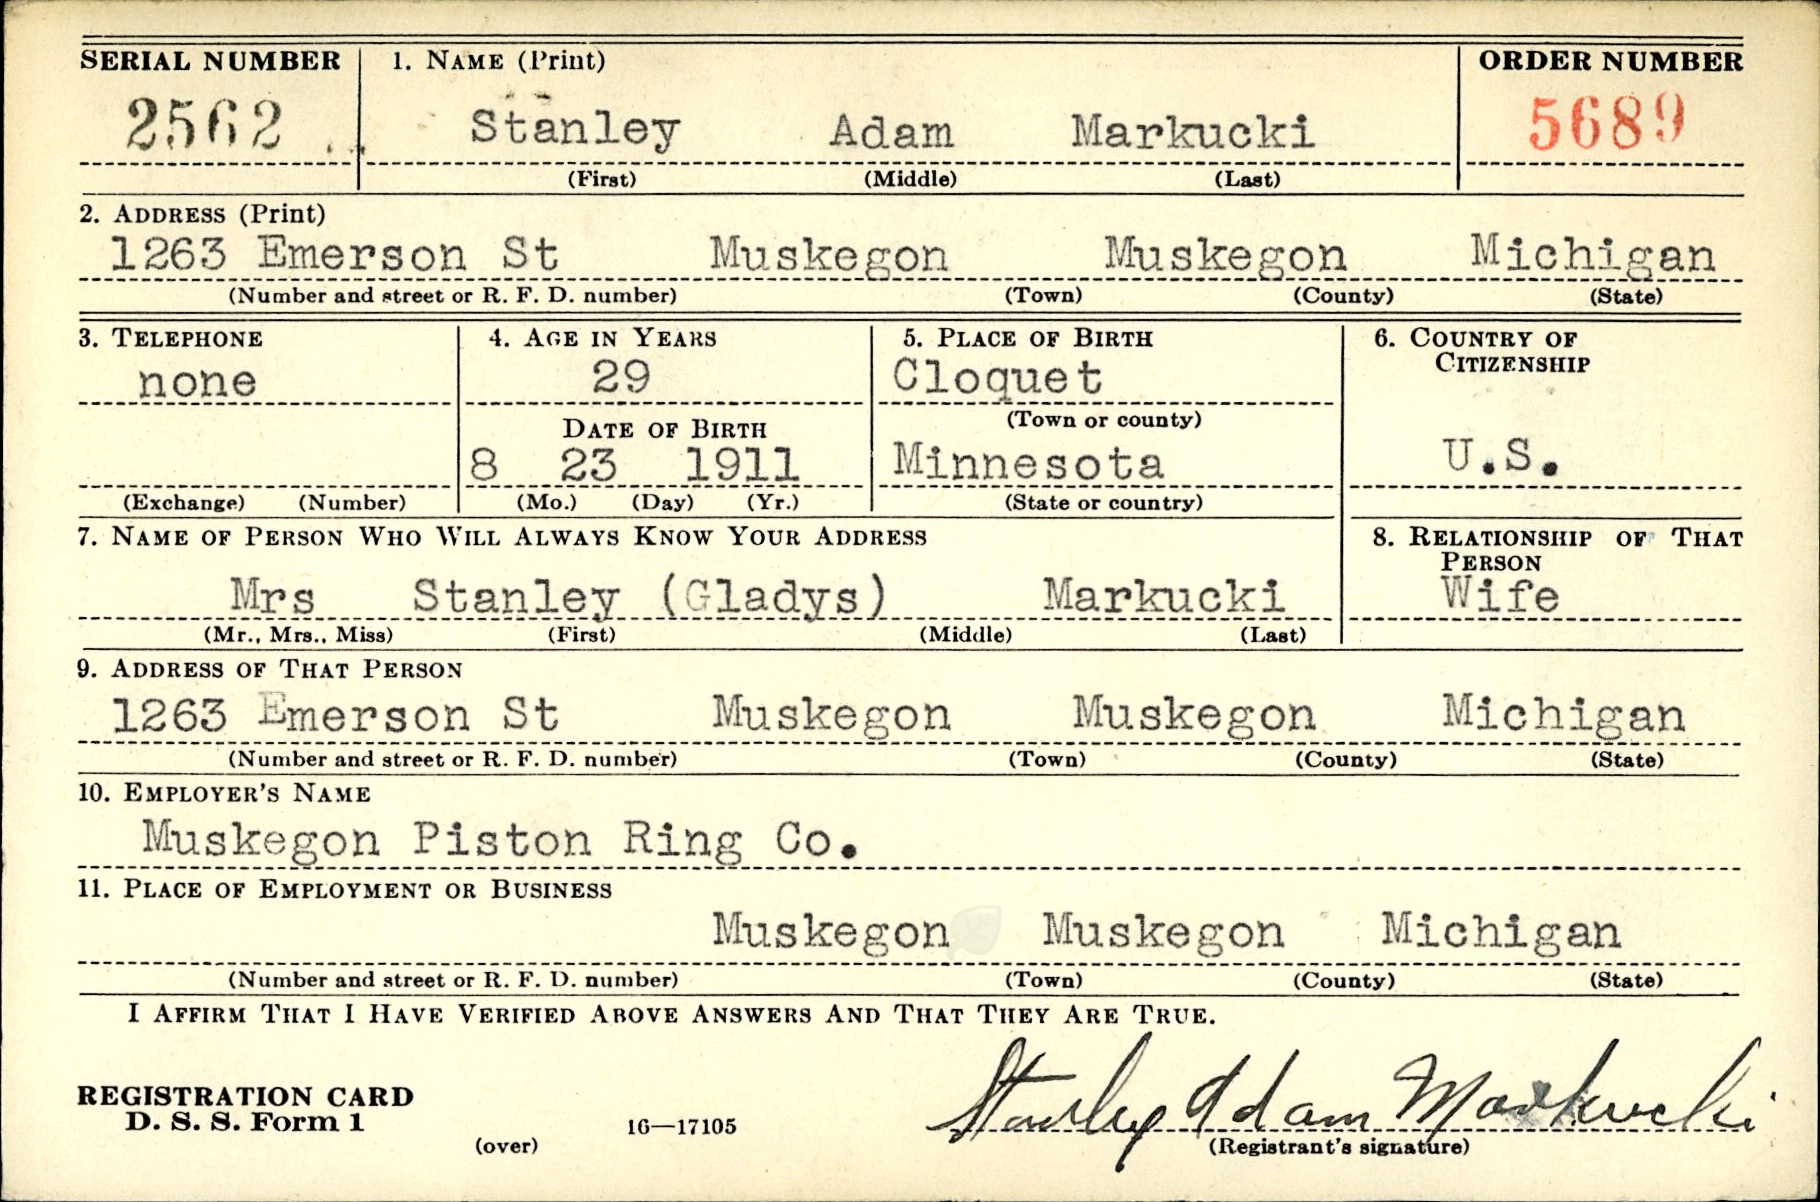 SERIAL NUMBER 1. NAME (Print) ORDER NUMBER
2562 Stanley Adam Markucki 5689
(First) (Middle) (Last)
2. ADDRESS (Print)
1263 Emerson St Muskegon Muskegon Michigan
(Number and street or R. F. D. number) (Town) (County) (State)
3. TELEPHONE 4. AGE IN YEARS 5. PLACE OF BIRTH 6. COUNTRY OF
CITIZENSHIP
none 29 Cloquet
(Town or county)
DATE OF BIRTH
8 23 1911 Minnesota U.S.
(Exchange) (Number) (Mo.) (Day) (Yr.) (State or country)
7. NAME OF PERSON WHO WILL ALWAYS KNOW YOUR ADDRESS 8. RELATIONSHIP OF THAT
PERSON
Mrs Stanley (Gladys) Markucki Wife
(Mr., Mrs., Miss) (First) (Middle) (Last)
9. ADDRESS OF THAT PERSON
1263 Emerson St Muskegon Muskegon Michigan
(Number and street or R. F. D. number) (Town) (County) (State)
10. EMPLOYER'S NAME
Muskegon Piston Ring Co.
11. PLACE OF EMPLOYMENT OR BUSINESS
Muskegon Muskegon Michigan
(Number and street or R. F. D. number) (Town) (County) (State)
I AFFIRM THAT I HAVE VERIFIED ABOVE ANSWERS AND THAT THEY ARE TRUE.
Stanley Adam Markucki
REGISTRATION CARD
D. S. S. Form 1
(over) 16—17105 (Registrant's signature)